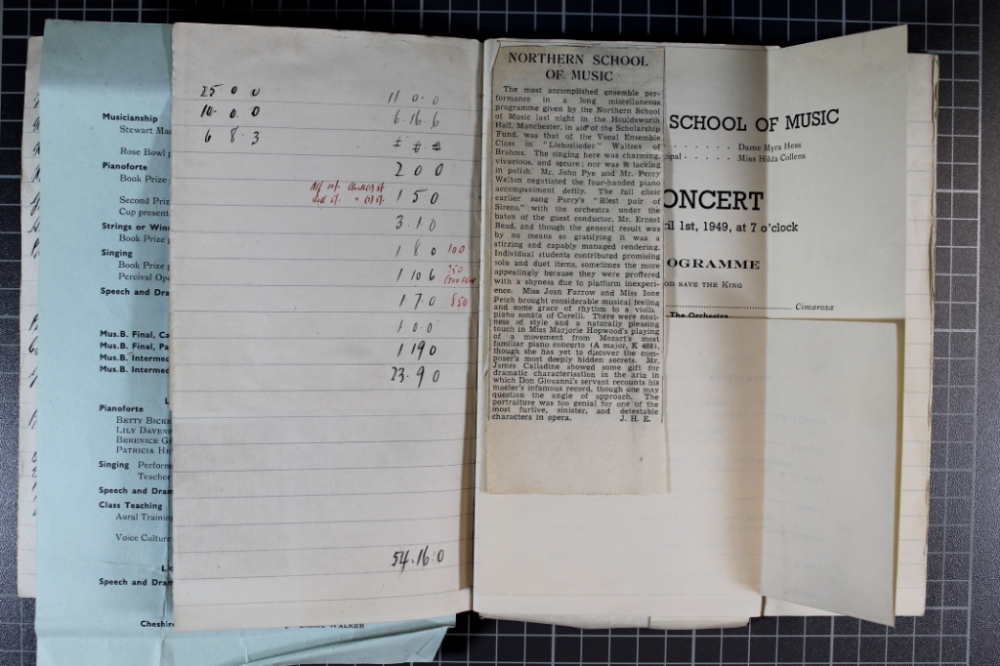 Musicianship
Stewart
Rose Bowl
Pianoforte
Book Prize
Second
Cup
Strings or
Book Prize
Singing
Book Prize
Percival
Speech and
Mus.B. Final,
Mus.B. Final,
Mus.B.
Mus.B.
Pianoforte
BETTY
LILY
BERENICE
PATRICIA
Singing
Teacher
Speech and
Class Teaching
Aural
Voice
Speech and
WALKER
25 0 0
10. 0. 0
6 8 3
11 0. 0
6. 16. 6
2 0 0
1 5 0
3. 1 0
1 8 0 100
1 10 6
1 7 0 850
1 0 0
1 19 0
23. 9 0
54. 16. 0
NORTHERN SCHOOL
OF MUSIC
The most accomplished ensemble per-
formance in a long miscellaneous
programme given by the Northern School
of Music last night in the Houldsworth
Hall, Manchester, in aid of the Scholarship
Fund, was that of the Vocal Ensemble
Class in "Liebeslieder" Waltzes of
Brahms. The singing here was charming,
vivacious, and secure; nor was it lacking
in polish. Mr. John Pye and Mr. Percy
Welton negotiated the four-handed piano
accompaniment deftly. The full choir
earlier sang Parry's "Blest pair of
Sirens," with the orchestra under the
baton of the guest conductor, Mr. Ernest
Read, and though the general result was
by no means so gratifying it was a
stirring and capably managed rendering.
Individual students contributed promising
solo and duet items, sometimes the more
appealingly because they were proffered
with a shyness due to platform inexperi-
ence. Miss Joan Farrow and Miss Ione
Petch brought considerable musical feeling
and some grace of rhythm to a violin-
piano sonata of Corelli. There were neat-
ness of style and a naturally pleasing
touch in Miss Marjorie Hopwood's playing
of a movement from Mozart's most
familiar piano concerto (A major, K 488),
though she has yet to discover the com-
poser's most deeply hidden secrets. Mr.
James Calladine showed some gift for
dramatic characterisation in the aria in
which Don Giovanni's servant recounts his
master's infamous record, though one may
question the angle of approach. The
portraiture was too genial for one of the
most furtive, sinister, and detestable
characters in opera. J. H. E.
SCHOOL OF MUSIC
Dame Myra Hess
Miss Hilda Collens
CONCERT
1st, 1949, at 7 o'clock
SAVE THE KING
Cimarosa
The Orchestra